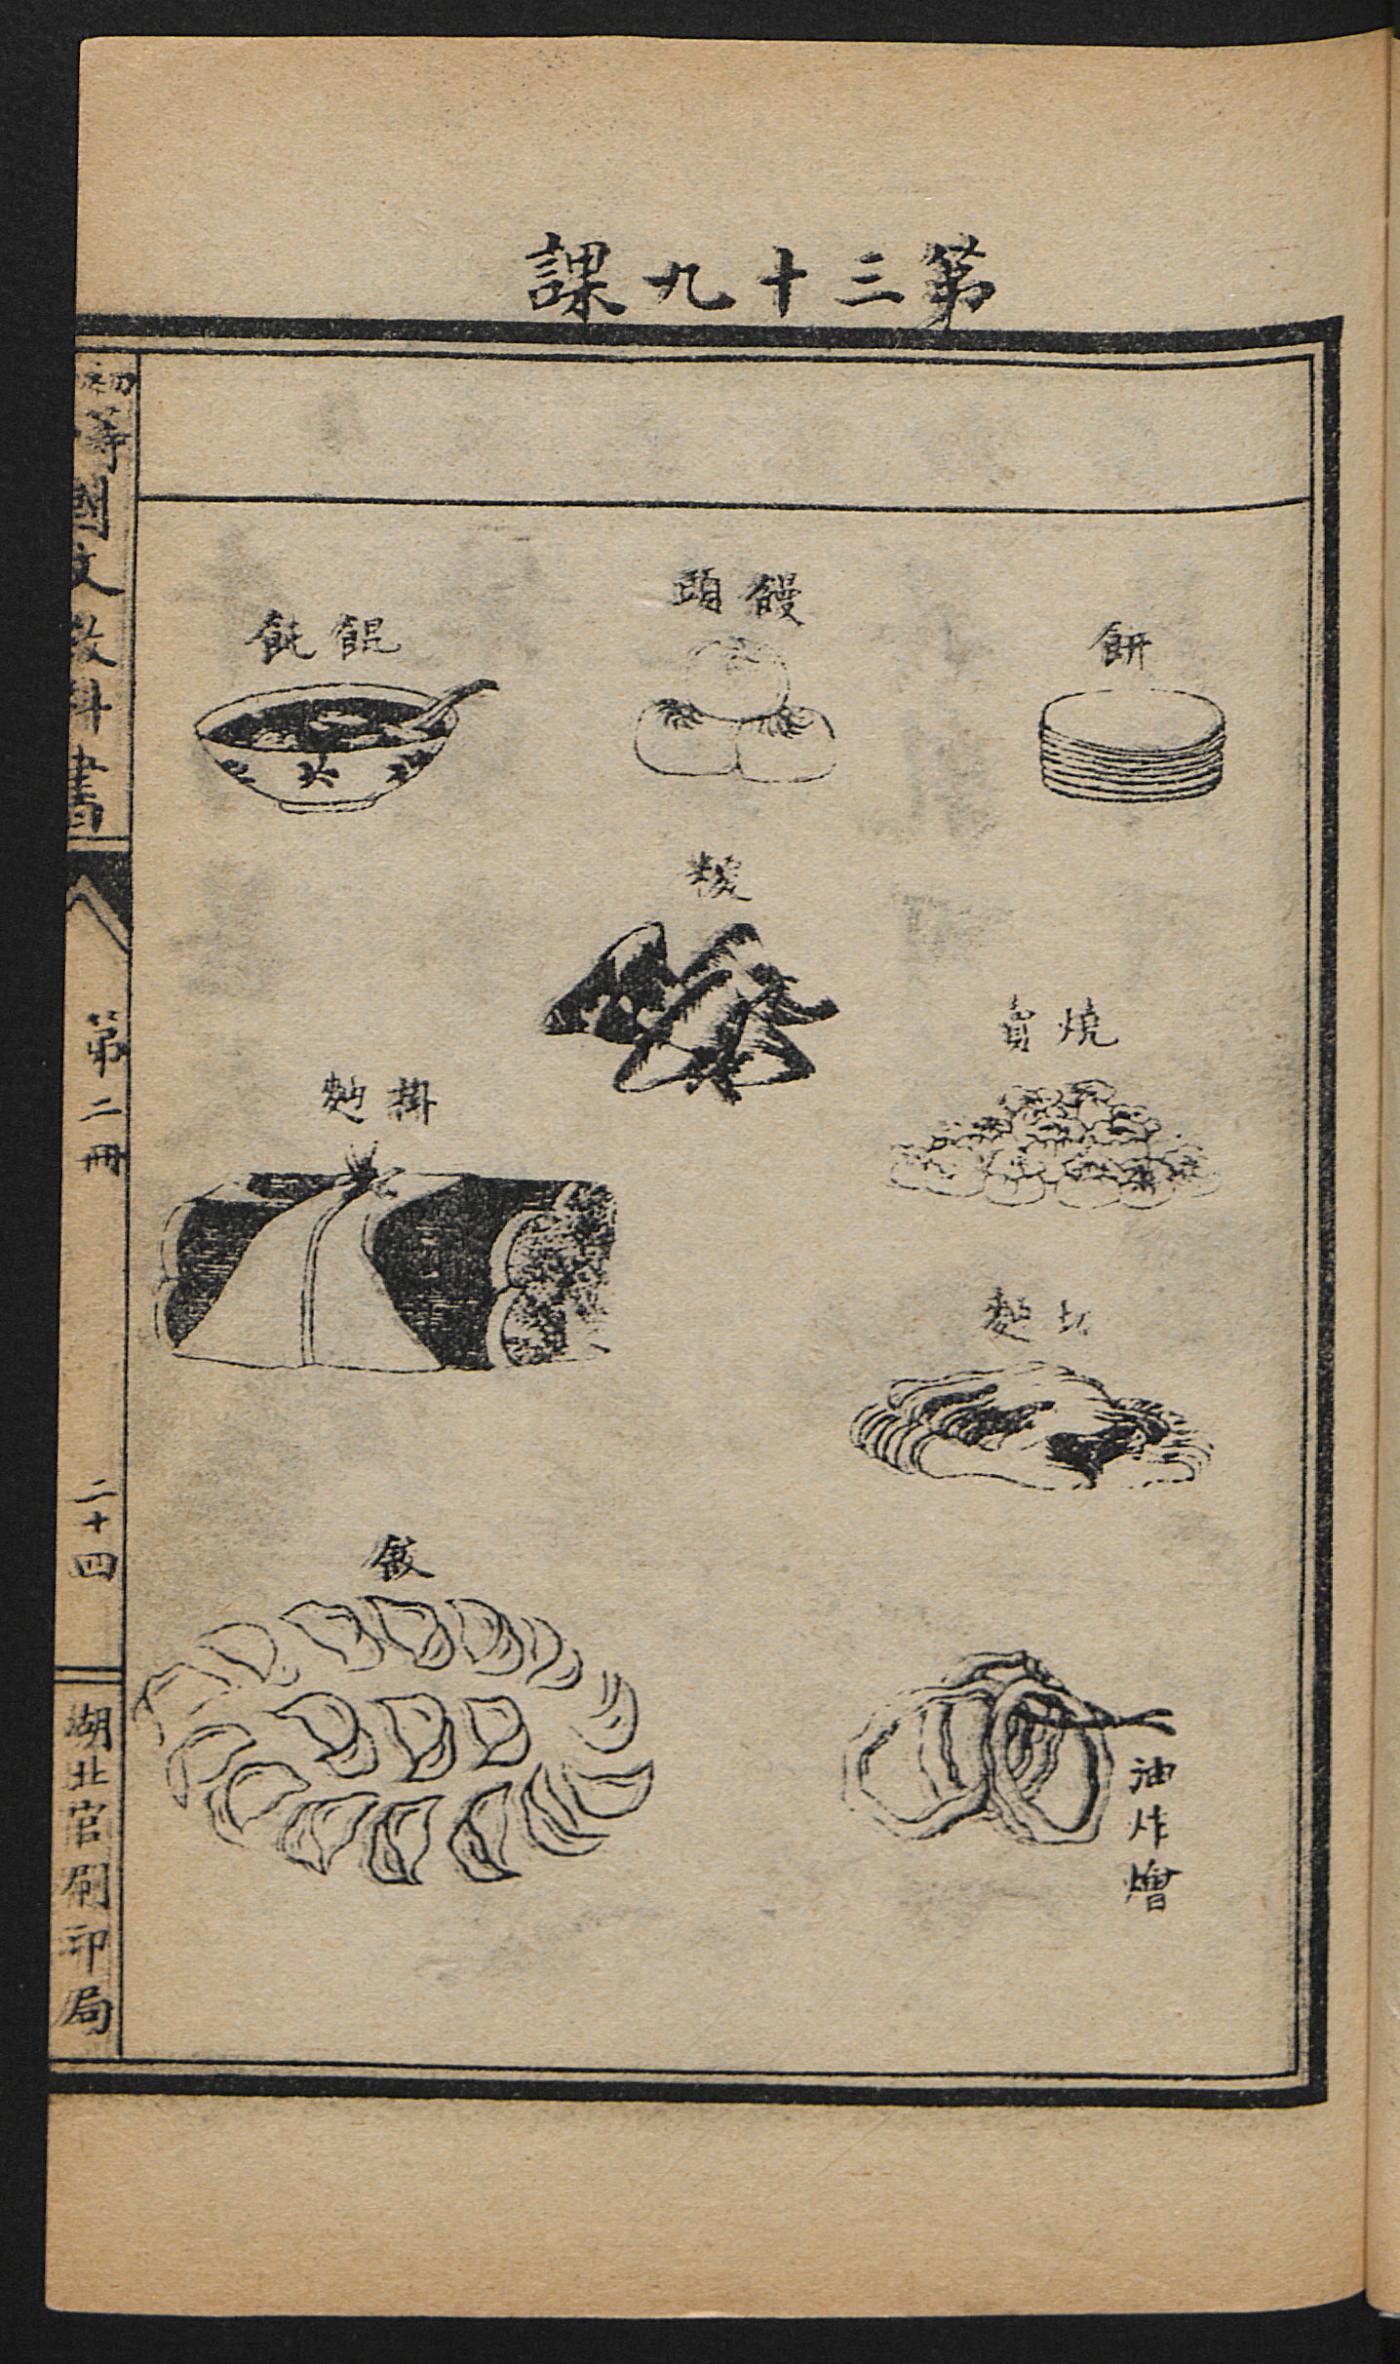 第三十九課
餅
饅頭
餛飩
糭
燒賣
掛麪
切麪
餃
油炸燴
初等國文教科書
第二冊
二十四
湖北官刷印局